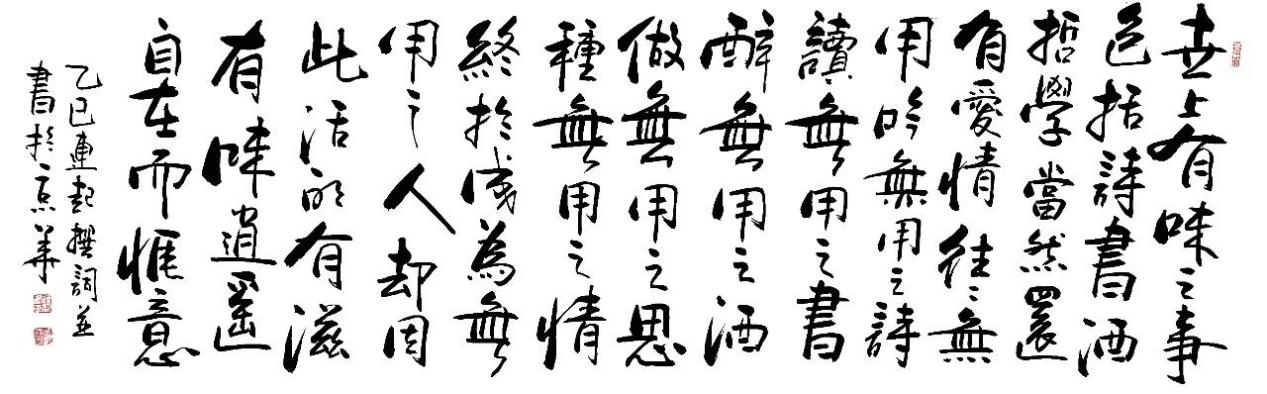 世上有味之事
包括詩書酒
哲學當然還
有愛情往〻無
用吟無用之詩
讀無用之書
醉無用之酒
做無用之思
種無用之情
終於成為無
用之人却因
此活的有滋
有味逍遥
自在而愜意
乙巳連起撰詞並
書於京華